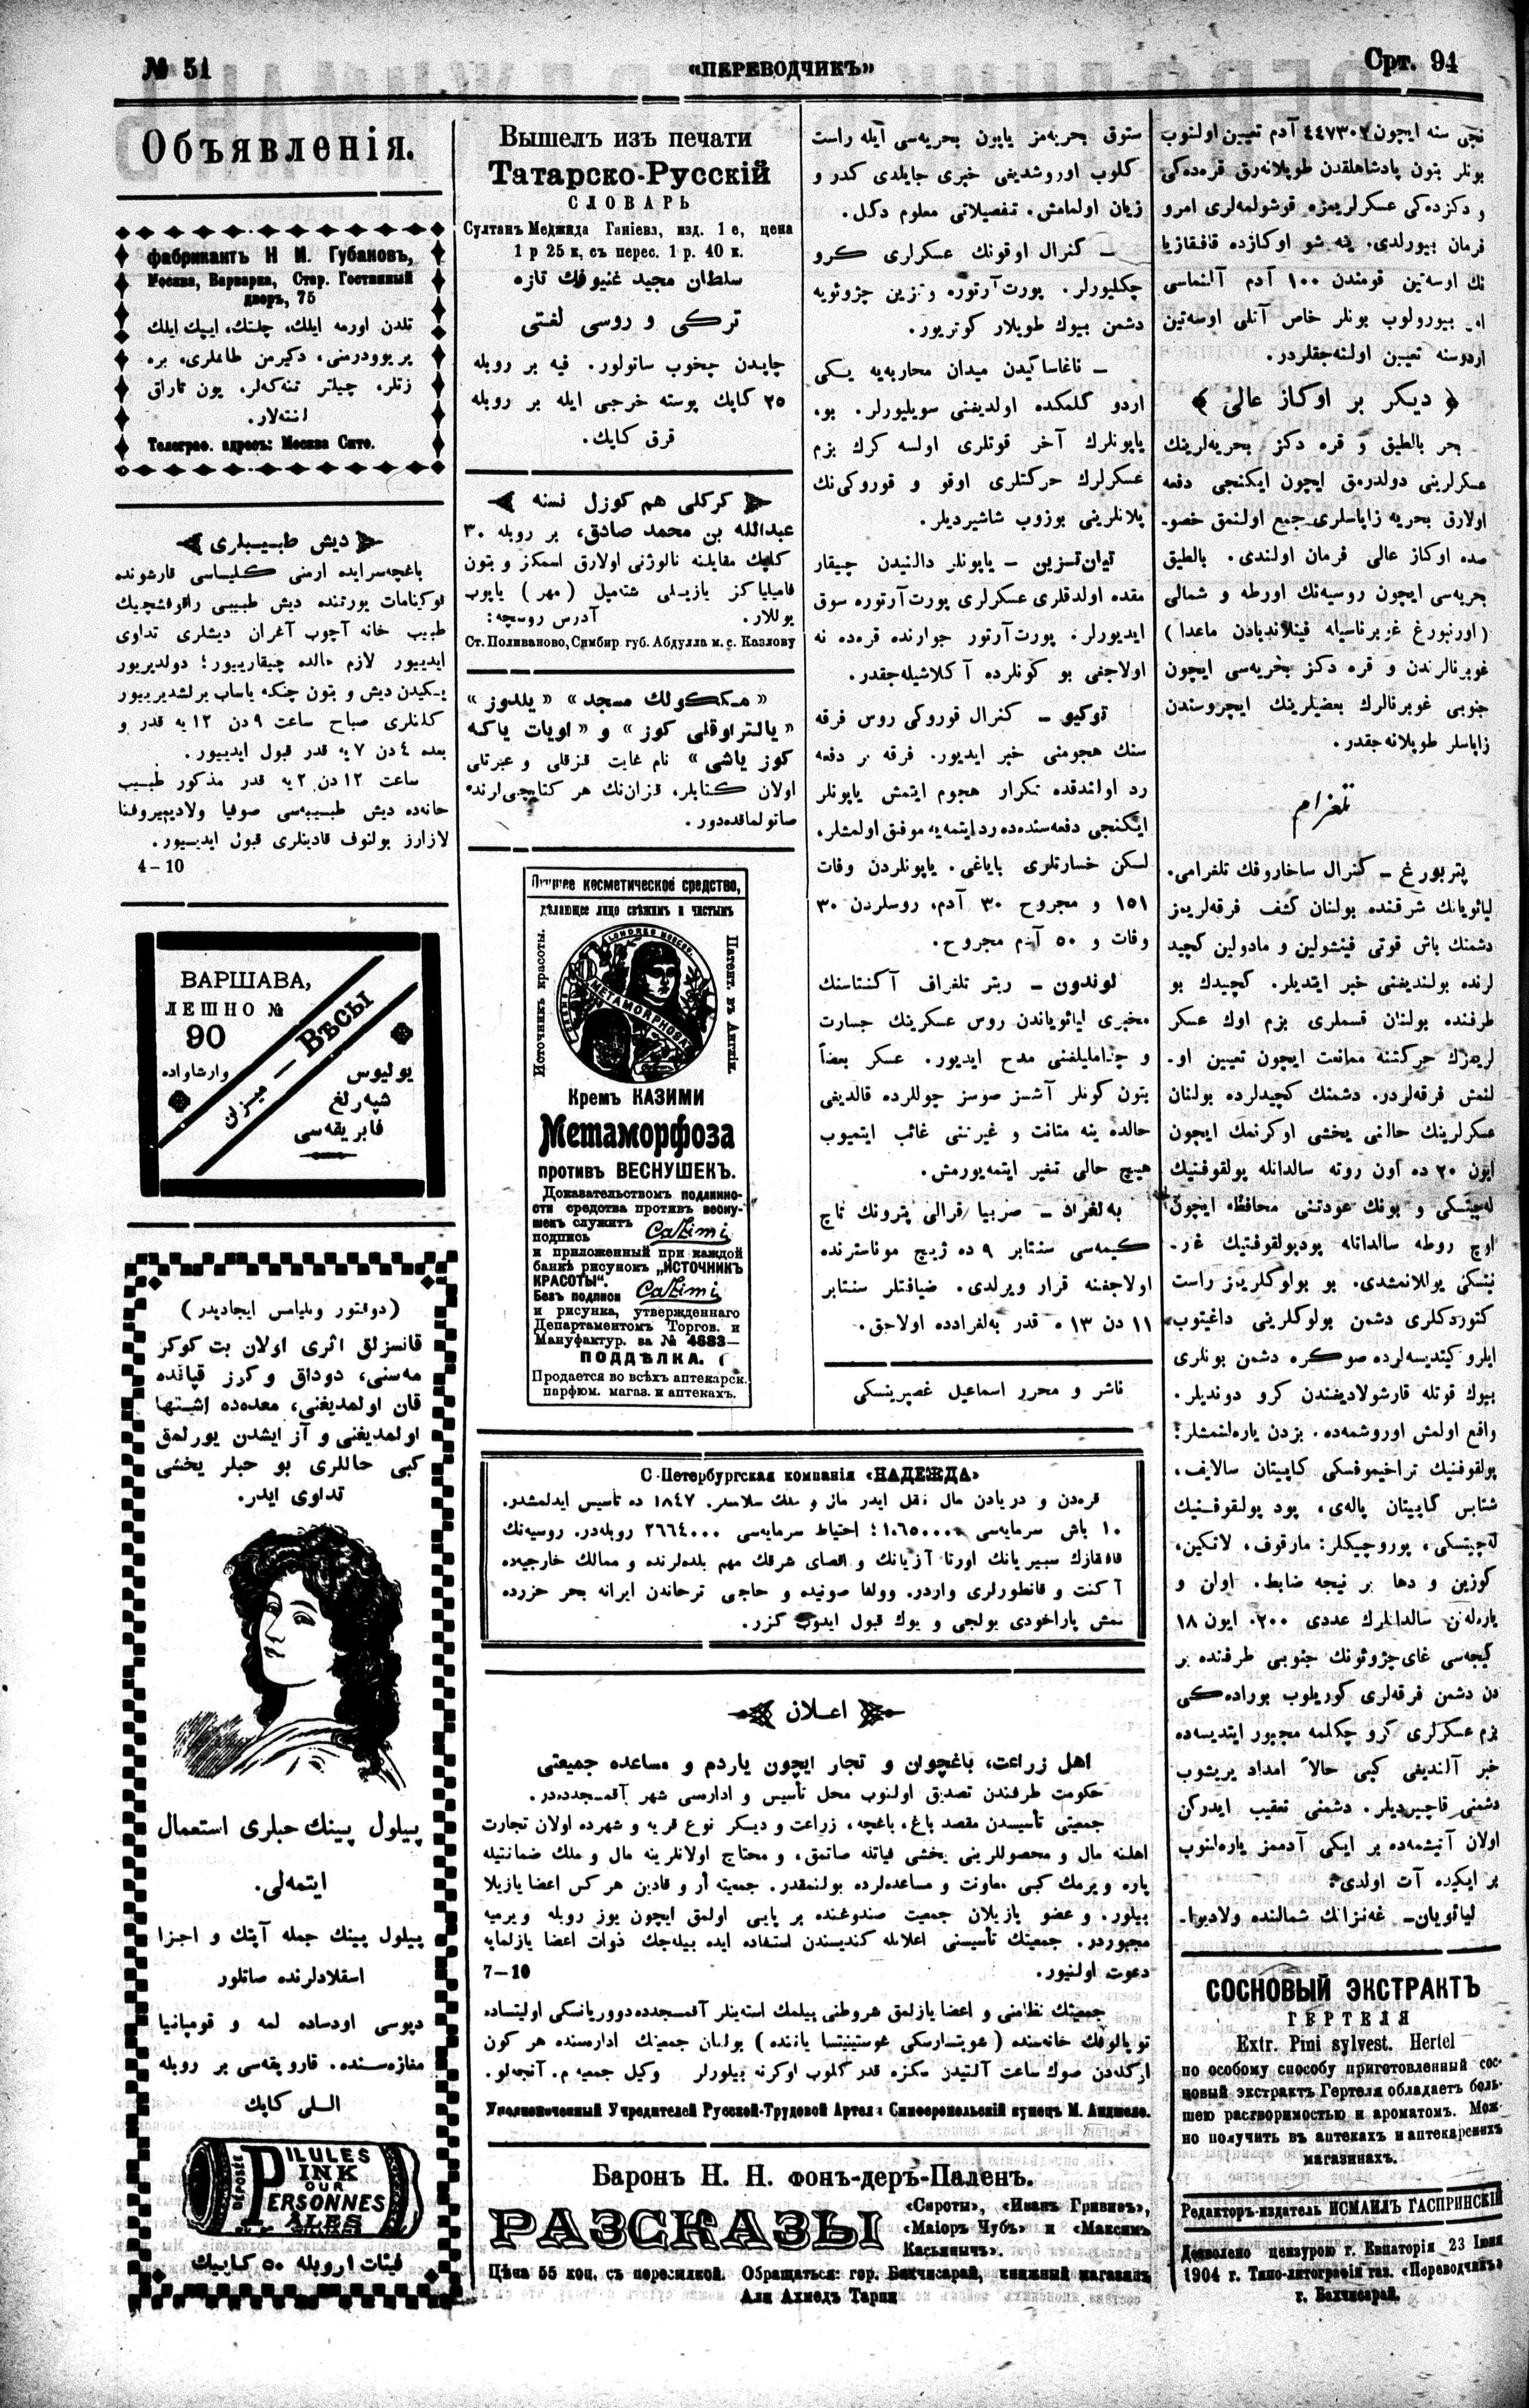 № 51
«ПЕРЕВОДЧИКЪ»
Срт. 94
نجی سنه ایچون ۴٤۷۳۰۲ آدم تعیین اولنوب
بونلر بتون پادشاهلقدن طوپلانه‌رق قره‌ده‌کی
و دکزده‌کی عسکرلریمزه قوشولمه‌لری امرو
فرمان بیورلدی. ینه شو اوکازده قافقازیا
نك اوسه‌تین قومندن ۱۰۰ آدم آلنماسی
بیورولوب بونلر خاص آتلی اوسه‌تین
اردوسنه تعیین اولنه‌جقلردر.
﴿ دیکر بر اوکاز عالی ﴾
بحر بالطیق و قره دکز بحریه‌لرینك
عسکرلرینی دولدرمق ایچون ایکنجی دفعه
اولارق بحریه زاپاسلری جمع اولنمق خصو-
صده اوکاز عالی فرمان اولندی. بالطیق
بحریه‌سی ایچون روسیه‌نك اورطه و شمالی
(اورنبورغ غوبرناسیله فینلاندیادن ماعدا)
غوبرنالرندن و قره دکز بحریه‌سی ایچون
جنوبی غوبرنالرك بعضیلرینك ایچروسندن
زاپاسلر طوپلانه‌جقدر.
تلغرام
پتربورغ – کنرال ساخاروفك تلغرامی.
لیائویانك شرقنده بولنان کشف فرقه‌لریمز
دشمنك باش قوتی فینشولین و مادولین کچید
لرنده بولندیغنی خبر ایتدیلر. کچیدك بو
طرفنده بولنان قسملری بزم اوك عسکر
لریمزك حرکتنه ممانعت ایچون تعیین او-
لنمش فرقه‌لردر. دشمنك کچیدلرده بولنان
عسکرلرینك حالنی یخشی اوکرنمك ایچون
ایون ۲۰ ده اون روته سالداتله پولقوفنیك
له‌چیتسکی و بونك عودتنی محافظه ایچون
اوچ روطه سالداتله پودپولقوفنیك غار-
نیتسکی یوللانمشدی. بو بولوکلریمز راست
کتوردکلری دشمن بولوکلرینی داغیتوب
ایلرو کیتدیسه‌لرده صوکره دشمن بونلری
بیوك قوتله قارشولادیغندن کرو دوندیلر.
واقع اولمش اوروشمه‌ده. بزدن یاره‌لنمشلر؛
پولقوفنیك تراخیموفسکی کاپیتان سالایف،
شتابس کاپیتان پاله‌ی، پود پولقوفنیك
له‌چیتسکی، پوروچیکلر: مارقوف، لاتکین،
کوزین و دها بر نیجه ضابط. اولن و
یاره‌لنن سالداتلرك عددی ۲۰۰. ایون ۱۸
کیجه‌سی غای‌چژوئونك جنوبی طرفنده بر
دن دشمن فرقه‌لری کوریلوب بوراده‌کی
بزم عسکرلری کرو چکلمه مجبور ایتدیسه‌ده
خبر آلندیغی کبی حالاً امداد یریشوب
دشمنی قاچیردیلر. دشمنی تعقیب ایدرکن
اولان آتیشمه‌ده بر ایکی آدممز یاره‌لنوب
بر ایکیده آت اولدی.
لیائویان– غه‌نزانك شمالنده ولادیوا-
СОСНОВЫЙ ЭКСТРАКТЪ
ГЕРТЕЛЯ
Extr. Pini sylvest. Hertel
по особому способу приготовленный сос-
новый экстрактъ Гертеля обладаетъ боль-
шею растворимостью и ароматомъ. Мож-
но получить въ аптекахъ и аптекарскихъ
магазинахъ.
Редакторъ-издатель ИСМАИЛЪ ГАСПРИНСКІЙ
Дозволено цензурою г. Евпаторія 23 Іюня
1904 г. Типо-литографія газ. «Переводчикъ»
г. Бахчисарай.
ستوق بحریه‌مز یاپون بحریه‌سی ایله راست
کلوب اوروشدیغی خبری جایلدی کدر و
زیان اولمامش. تفصیلاتی معلوم دکل.
– کنرال اوقونك عسکرلری کرو
چکلیورلر. پورت آرتوره و تزین چژوئویه
دشمن بیوك طوپلار کوتریور.
– ناغاساکیدن میدان محاربه‌یه یکی
اردو کلمکده اولدیغنی سویلیورلر. بو،
یاپونلرك آخر قوتلری اولسه کرك بزم
عسکرلرك حرکتلری اوقو و قوروکی‌نك
پلانلرینی بوزوب شاشیردیلر.
تیان‌تسزین – یاپونلر دالنیدن چیقار
مقده اولدقلری عسکرلری پورت آرتوره سوق
ایدیورلر. پورت آرتور جوارنده قره‌ده نه
اولاجغی بو کونلرده آکلاشیله‌جقدر.
توکیو – کنرال قوروکی روس فرقه
سنك هجومنی خبر ایدیور. فرقه بر دفعه
رد اولندقده تکرار هجوم ایتمش یاپونلر
ایکنجی دفعه‌سنده‌ده رد ایتمه‌یه موفق اولمشلر،
لسکن خسارتلری بایاغی. یاپونلردن وفات
۱۵۱ و مجروح ۳۰ آدم، روسلردن ۳۰
وفات و ۵۰ آدم مجروح.
لوندون – ریتر تلغراف آکنتاسنك
مخبری لیائویاندن روس عسکرینك جسارت
و چدامليلغنی مدح ایدیور. عسکر بعضاً
بتون کونلر آشسز صوسز چوللرده قالدیغی
حالده ینه متانت و غیرتنی غائب ایتمیوب
هیچ حالی تغیر ایتمه‌یورمش.
به‌لغراد – صربیا قرالی پترونك تاج
کیمه‌سی سنتابر ۹ ده ژیچ موناسترنده
اولاجغنه قرار ویرلدی. ضیافتلر سنتابر
۱۱ دن ۱۳ ه قدر به‌لغرادده اولاجق.
ناشر و محرر اسماعیل غصپرینسکی
Вышелъ изъ печати
Татарско-Русскій
СЛОВАРЬ
Султанъ Меджида Ганіева, изд. 1 е, цена
1 р 25 к, съ перес. 1 р. 40 к.
سلطان مجید غنیوفك تازه
ترکی و روسی لغتی
چاپدن چخوب ساتولور. قیه بر روبله
۲۵ کاپك پوسته خرجی ایله بر روبله
قرق کاپك.
کرکلی هم کوزل نسنه
عبدالله بن محمد صادق، بر روبله ۳۰
کاپك مقابلنه نالوژنی اولارق اسمکز و بتون
فامیلیاکز یازیلی شتامپل (مهر) یاپوب
یوللار. آدرس روسچه:
Ст. Поливаново, Симбир губ. Абдулла м. с. Казлову
«مککولك مسجد» «یلدوز»
«یالتراوقلی کوز» و «اویات یاکه
کوز یاشی» نام غایت قزقلی و عبرتلی
اولان کتابلر، قزان‌نك هر کتابچی‌لرنده
صاتولماقده‌دور.
Лучшее косметическое средство,
дѣлающее лицо свѣжимъ и чистымъ
Источникъ красоты.
Патент. въ Англіи.
METAMORPHOSA
Кремъ КАЗИМИ
Метаморфоза
противъ ВЕСНУШЕКЪ.
Доказательствомъ подлинно-
сти средства противъ весну-
шекъ служитъ
подпись Casimi
и приложенный при каждой
банкѣ рисунокъ „ИСТОЧНИКЪ
КРАСОТЫ“.
Безъ подписи Casimi
и рисунка, утвержденнаго
Департаментомъ Торгов. и
Мануфактур. за № 4683—
ПОДДѢЛКА.
Продается во всѣхъ аптекарск.
парфюм. магаз. и аптекахъ.
С-Петербургская компанія «НАДЕЖДА»
قره‌دن و دریادن مال نقل ایدر مال و ملك سلامتلر. ۱۸٤۷ ده تأسیس ایدلمشدر.
باش سرمایه‌سی ؛ احتیاط سرمایه‌سی ۲٦٦٤۰۰۰ روبله‌در. روسیه‌نك
قافقازك سبیریانك اورتا آزیانك و اقصای شرقك مهم بلده‌لرنده و ممالك خارجیه‌ده
آکنت و قانطورلری واردر. وولغا صوئیده و حاجی ترحاندن ایرانه بحر حزرده
پاراخودی یولجی و یوك قبول ایدوب کزر.
اعـلان
اهل زراعت، باغچوان و تجار ایچون یاردم و مساعده جمیعتی
حکومت طرفندن تصدیق اولنوب محل تأسیس و اداره‌سی شهر آقمسجدده‌در.
جمعیتی تأسیسدن مقصد باغ، باغچه، زراعت و دیکر نوع قریه و شهرده اولان تجارت
اهلنه مال و محصوللرینی یخشی فیاتله صاتمق، و محتاج اولانلرینه مال و ملك ضمانتیله
پاره ویرمك کبی معاونت و مساعده‌لرده بولنمقدر. جمعیته ار و قادین هر کس اعضا یازیلا
بیلور. و عضو یازیلان جمعیت صندوغنده بر پایی اولمق ایچون یوز روبله ویرمیه
مجبوردر. جمعیتك تأسیسنی اعلانله کندیسندن استفاده ایده بیله‌جك ذوات اعضا یازلمایه
دعوت اولنیور. 7—10
جمعیتك نظامنی و اعضا یازلمق شروطنی بیلمك استه‌ینلر آقمسجدده دووریانسکی اولیتساده
توپالوفك خانه‌سنده (غوستینیتسا یاننده) بولنان جمعیتك اداره‌سنده هر کون
ارکه‌دن صوك ساعت آلتیدن سکزه قدر کلوب اوکرنه بیلورلر وکیل جمعیه م. آنجه‌لو.
Уполномоченный Учредителей Русской-Трудовой Артели Симферопольскій купецъ М. Анджело.
Баронъ Н. Н. фонъ-деръ-Паленъ.
РАЗСКАЗЫ
«Сироты», «Иванъ Гривневъ»,
«Маіоръ Чубъ» и «Максимъ
Касьянычъ».
Цѣна 55 коп. съ пересылкой. Обращаться: гор. Бахчисарай, книжный магазинъ
Али Ахмедъ Тарпи
Объявленія.
фабрикантъ Н И. Губановъ,
Москва, Варварка, Стар. Гостинный
дворъ, 75
تلدن اورمه ایلك، چلتك، ایپك ایلك
پریوودرمنی، دکیرمن طاشلری، بره
زتلر، چیلتر تنه‌که‌لر. یون تاراق
لنته‌لار.
Телеграф. адресъ: Москва Сито.
دیش طبیبلری
باغچه‌سرایده ارمنی کلیساسی قارشونده
لوکینامات یورتنده دیش طبیبی رافوفشچیك
طبیب خانه آچوب آغران دیشلری تداوی
ایدییور لازم حالده چیقارییور؛ دولدیریور
یکیدن دیش و بتون چنکه یاساب یرلشدیرییور
کلنلری صباح ساعت ۹ دن ۱۲ یه قدر و
بعده ٤ دن ۷ یه قدر قبول ایدییور.
ساعت ۱۲ دن ۲ یه قدر مذکور طبیب
خانه‌ده دیش طبیبه‌سی صوفیا ولادیمیروفنا
لازارز بولنوف قادینلری قبول ایدییور.
4—10
ВАРШАВА,
ЛЕШНО №
90
ВѢСЫ — میزان
وارشاواده
یولیوس
شپه‌رلغ
فابریقه‌سی
(دوقتور ویلیامس ایجادیدر)
قانسزلق اثری اولان بت کوکر
مه‌سنی، دوداق و کوز قپاقده
قان اولمدیغنی، معده‌ده اشتها
اولمدیغنی و آز ایشدن یورلمق
کبی حاللری بو حبلر یخشی
تداوی ایدر.
پیلول پینك حبلری استعمال
ایتمه‌لی.
پیلول پینك جمله آپتك و اجزا
اسقلادلرنده صاتلور
دپوسی اودساده لمه و قومپانیا
مغازه‌سنده. قاروبقه‌سی بر روبله
اللی کاپك
PILULES
PINK
POUR
PERSONNES
PALES
DÉPOSÉE
فیئات ۱ روبله ۵۰ کاپیك